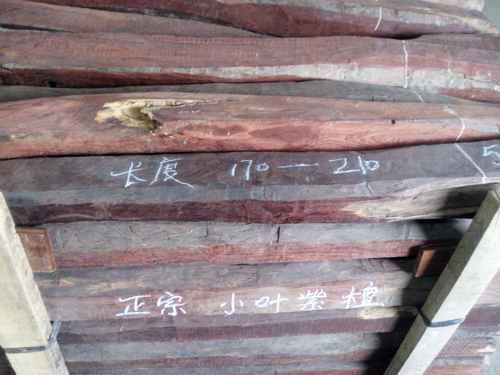 长度 170—210
5
正宗 小叶紫檀